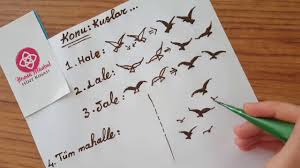 Konu: Kuşlar...
1. Hale:
2. Lale:
3. Jale:
4. Tüm mahalle: